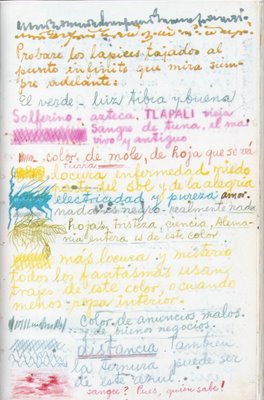 Probaré los lápices tajados al
punto infinito que mira siem-
pre adelante:
El verde - luz tibia y buena
Solferino - azteca. TLAPALI vieja
Sangre de tuna, el más
vivo y antiguo
color de mole, de hoja que se va
tierra
locura enfermedad miedo
parte del sol y de la alegría
electricidad y pureza amor.
nada es negro - realmente nada
Hojas, tristeza, ciencia, Alema-
nia entera es de este color
más locura y misterio
todos los fantasmas usan
trajes de este color, o cuando
menos ropa interior.
Color de anuncios malos
y de buenos negocios.
distancia. También
la ternura puede ser
de este azul.
sangre? Pues, quién sabe!